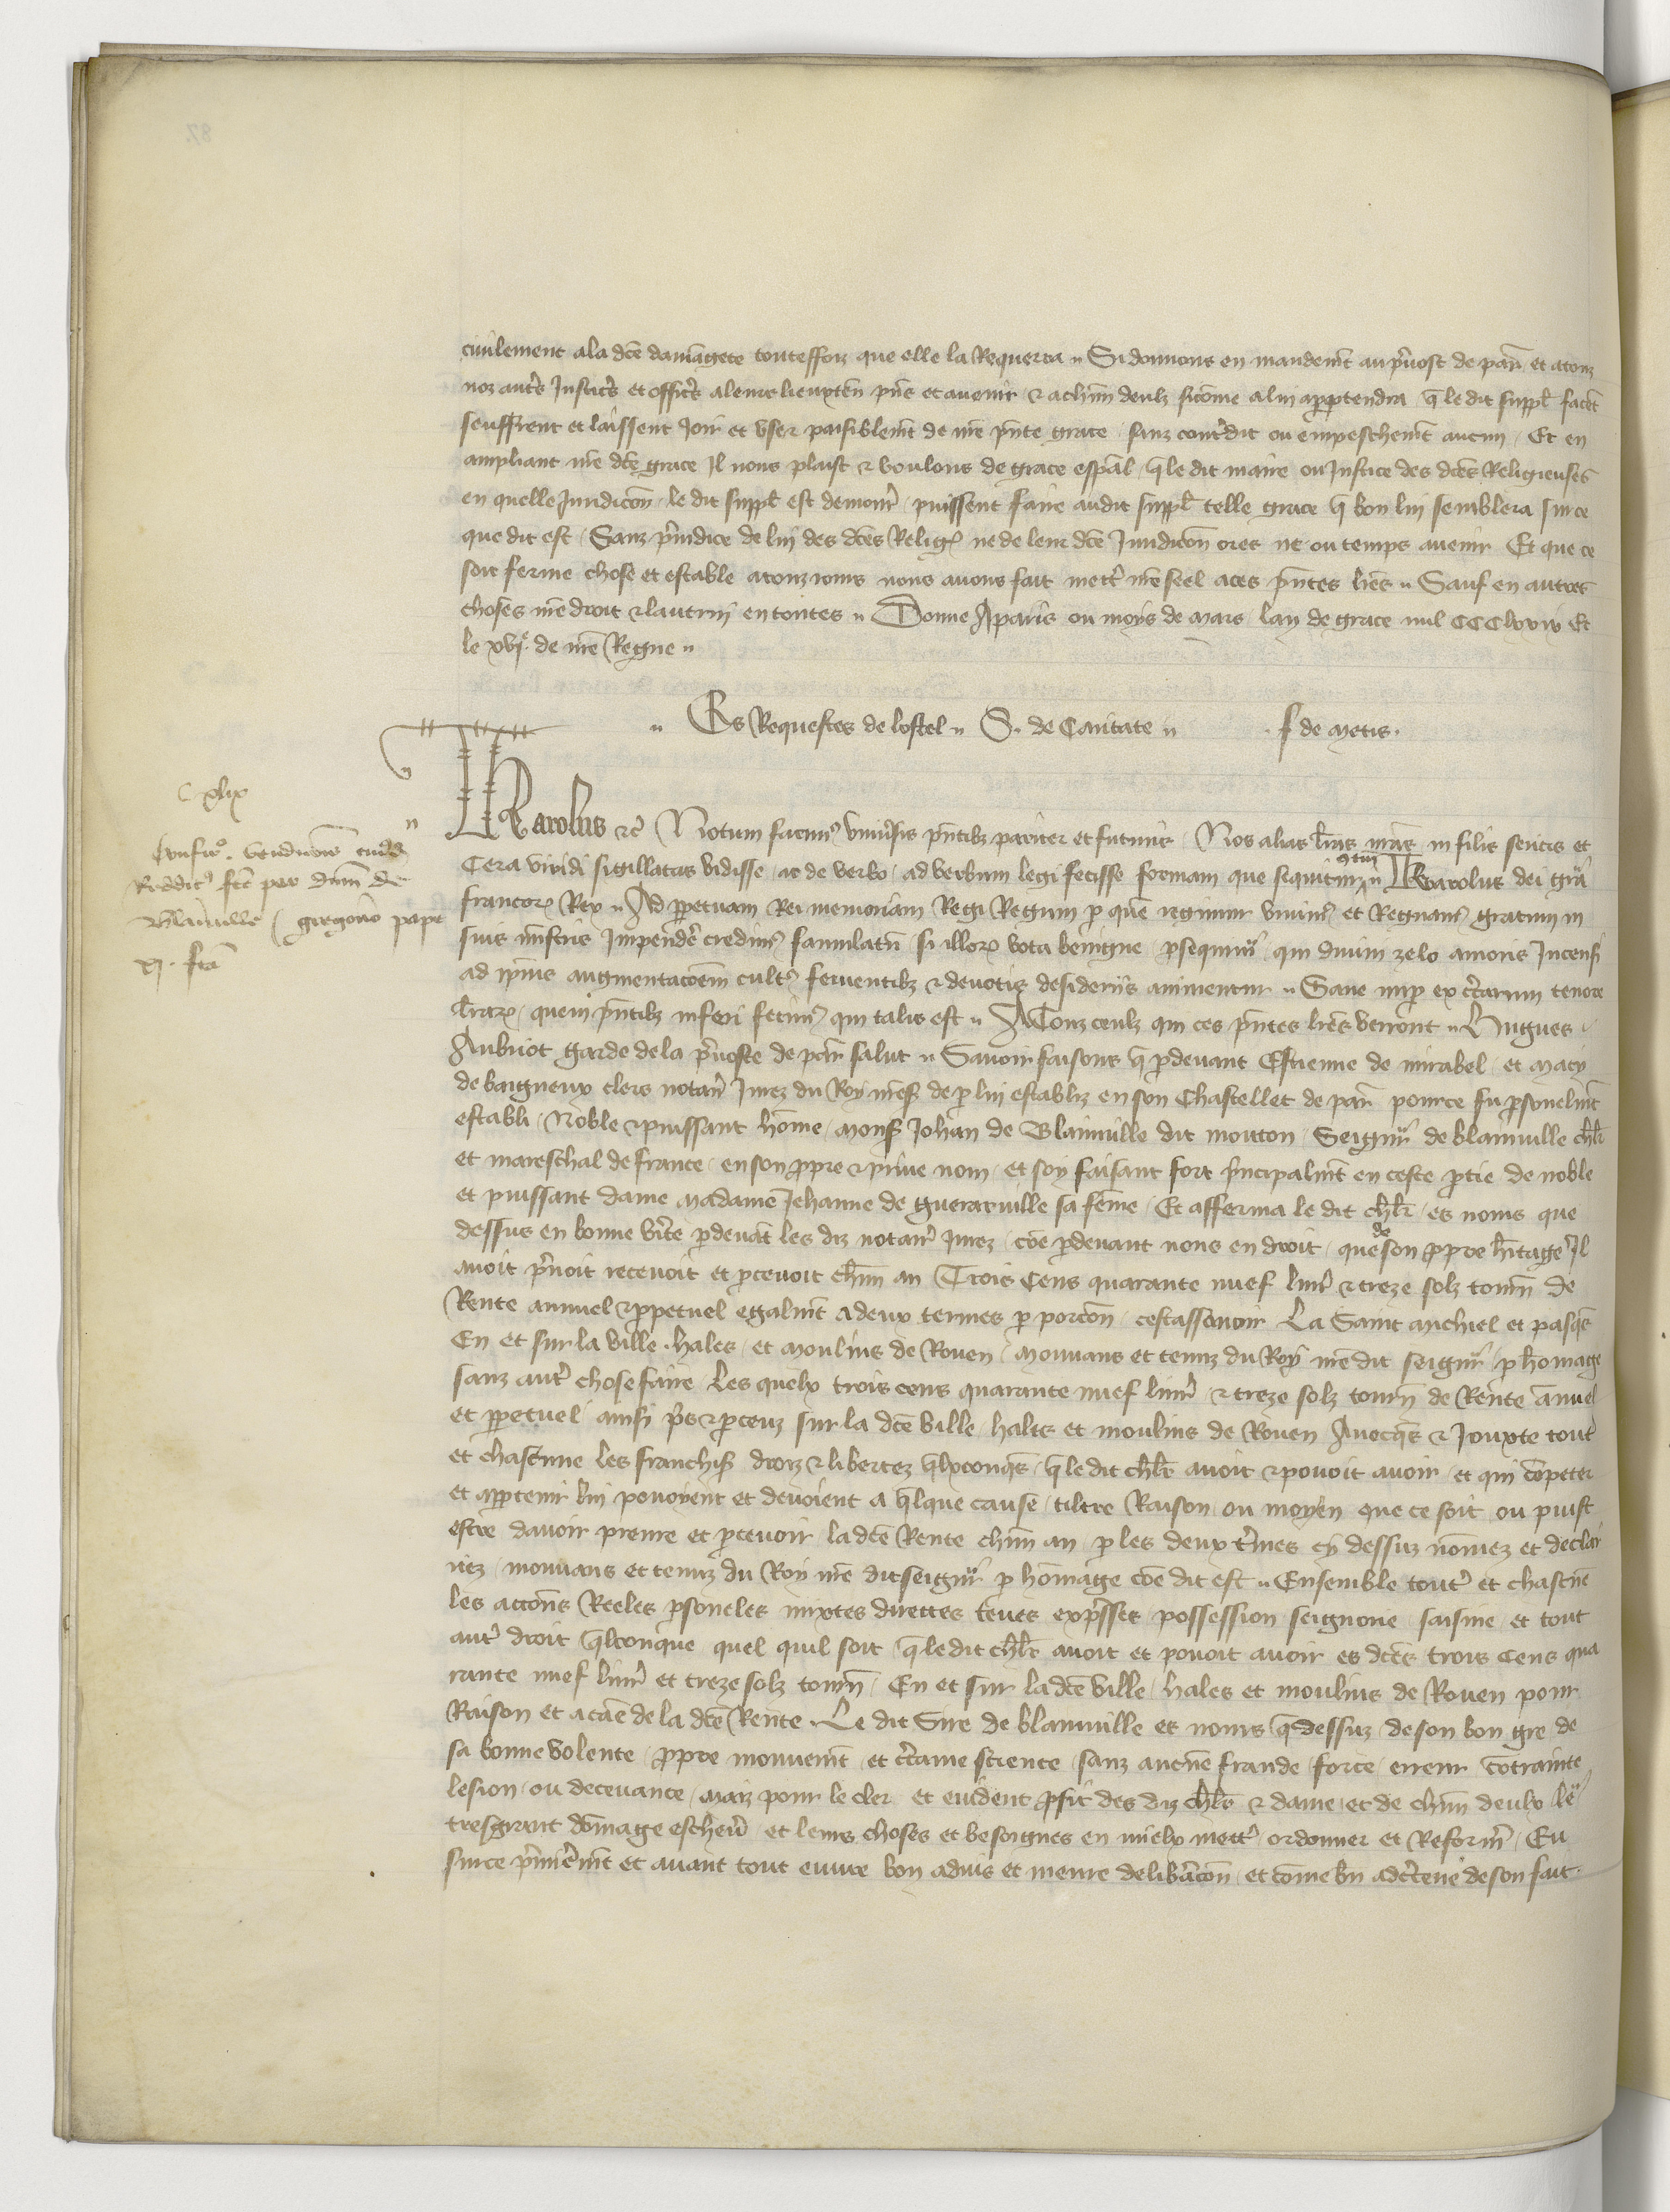 civilement a la dce damagete touteffoiz que elle la Requerra. Si donnons en mandemt au pvost de par et a touz
noz autrs Justicrs et officrs a leurs lieuxten pns et avenir & a chun deulz sicome a lui appartendra q le dit suppl facent
seuffrent et laissent Joir et user paisiblemt de nre pnte grace sanz contdit ou empeschemt aucun. Et en
ampliant nre dce grace Il nous plaist & voulons de grace espal q le dit maire ou Justice des dces Religieuses
en quelle Juridicon le dit suppl est demour puissent faire audit suppl telle grace q bon lui semblera sur ce
que dit est. Sanz pjudice de lui des dces Relig ne de leur dce Juridicon ores ne ou temps avenir. Et que ce
soit ferme chose et estable a touz iours nous avons fait mettr nre seel a ces pntes lres. Sauf en autres
choses nre droit & lautrui en toutes. Donne A paris ou moys de mars lan de grace mil CCC lxxix Et
le xvje de nre Regne
Es Requestes de lostel. S. de Caritate. J de metis.
C xlix
Confiro. vendicois cuiusd
Reddits fce per dnm de
Blainville gregorio pape
xj. fca
Karolus &c Notum facims univsis pntibz pariter et futuris Nos alias lras nras in filis sericis et
Cera viridi sigillatas vidisse ac de verbo ad verbum legi fecisse formam que sequitur gtin Karolus dei gra
francor Rex. Ad ppetuam Rei memoriam Regi Regum p quem regimur vivims et Regnams gratum in
suis mistris Impendere credims famulatu si illor vota benigne psequimur qui divini zelo amoris Incensi
ad ipius augmentacoem cults ferventibz & devotis desideriis animentur. Sane nup ex ctarum tenore
lrar quem pntibz inseri fecims qui talis est. A Touz ceulz qui ces pntes lres verront. Hugues
Aubriot garde de la pvoste de par salut. Savoir faisons q pdevant Estienne de mirabel et macy
de baigneux clers notar Jurez du Roy nres de p lui establiz en son Chastellet de par pour ce fu psonelmt
establi. Noble & puissant home mons Johan de Blainville dit mouton Seignr de blainville chlr
et mareschal de france en son ppre & prive nom et soy faisant fort pncipalmt en ceste ptie de noble
et puissant dame madame Jehanne de guerarville sa feme. Et afferma le dit chlr es noms que
dessus en bonne vite pdevat les diz notair Jurez coe pdevant nous en droit que de son ppre hitage Il
avoit pnoit recevoit et pcevoit chun an Trois Cens quarante nuef livr & treze solz tourn de
Rente annuel & ppetuel egalmt a deux termes p porcon cestassavoir La Saint michiel et pasqs
En et sur la ville hales et moulins de Rouen mouvans et tenuz du Roy nre dit seignr p homage
sanz autr chose faire Les quelx trois cens quarante nuef livr & treze solz tourn de Rente anuel
et ppetuel ainsi ps & pceuz sur la dce ville hales et moulins de Rouen Avecqs & Jouxte tout
et chascune les franchis droiz & libertez qlxconqs q le dit chlr avoit & povoit avoir et qui competer
et appteniir lui povoyent et devoient a qlque cause tiltre Raison ou moyen que ce soit ou puist
estre davoir prenre et pcevoir la dce Rente chun an p les deux trmes cy dessuz nomez et declai
riez mouvans et tenuz du Roy nre dit seignr p homage coe dit est. Ensemble toutr et chascune
les accons Reeles psoneles mixtes directes teues expsses possession seignorie saisine et tout
autr droit qlconque quel quil soit q le dit chlr avoit et povoit avoir es dces trois Cens qua
rante nuef livr et treze solz tourn En et sur la dce ville hales et moulins de Rouen pour
Raison et a cae de la dce Rente. Le dit Sire de blainville es noms q dessuz de son bon gre de
sa bonne volente ppre mouvemt et ctaine science sanz aucue fraude force erreur cotrainte
lesion ou decevance maiz pour le cler et evident pfit des diz chlr & dame et de chun deulx le
tresgrant domage eschevr et leurs choses et besoignes en mielx mettr ordonner et Reformr Eu
sur ce pmieremt et avant tout euvre bon advis et meure delibacon et come bn adctene de son fait